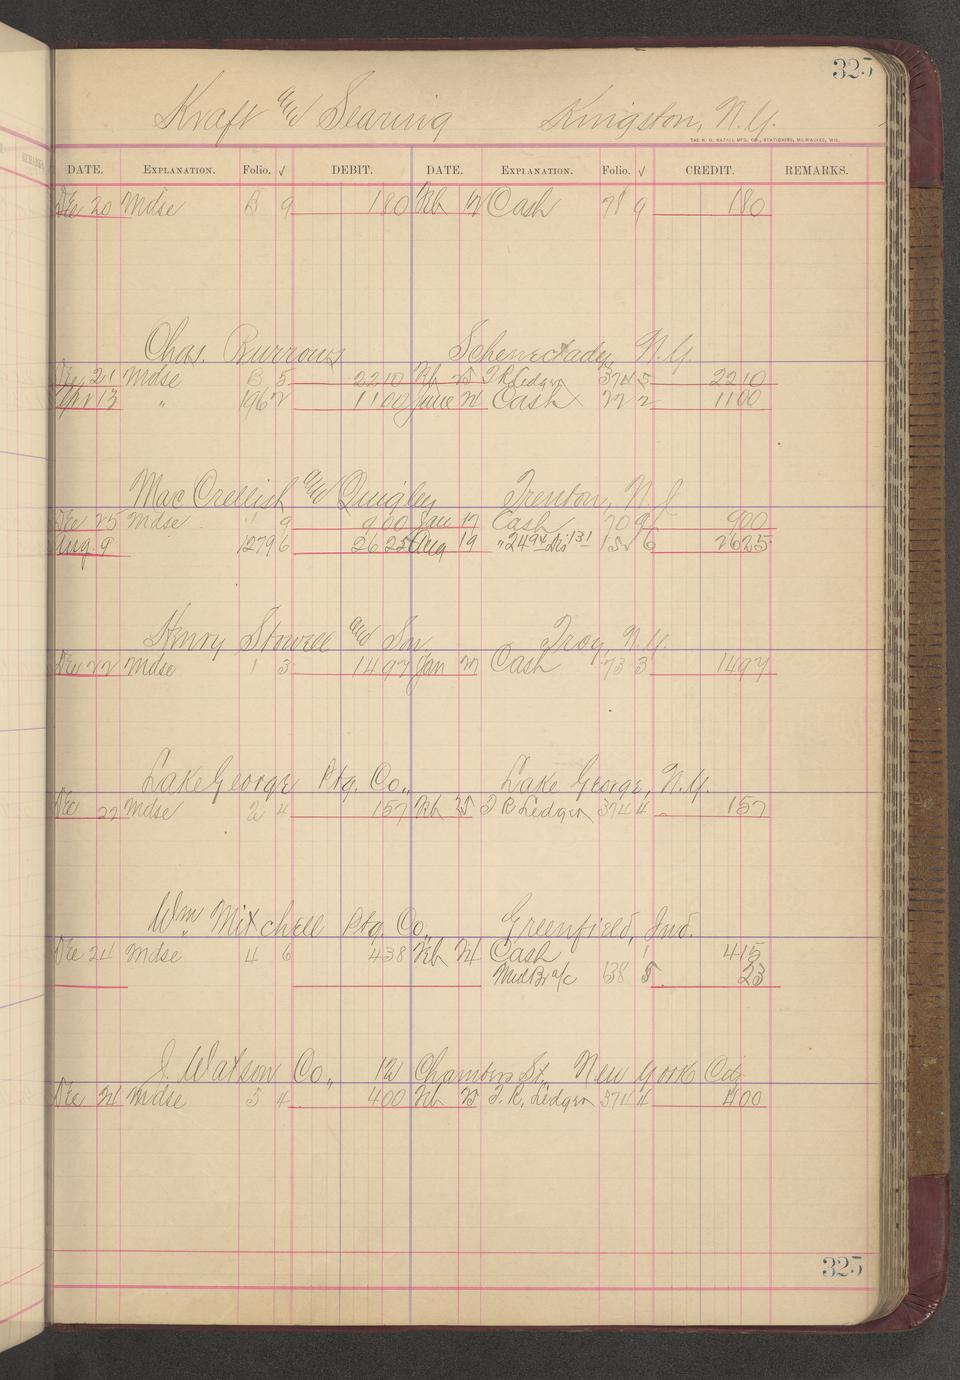 325
Kraft and Searing Kingston, N.Y.
THE H. G. RAZALL MFG. CO., STATIONERS, MILWAUKEE, WIS.
DATE. EXPLANATION. Folio. √ DEBIT. DATE. EXPLANATION. Folio. √ CREDIT. REMARKS.
Dec 20 Mdse B 9 180 Feb 12 Cash 78 9 180
Chas. Burrows Schenectady, N.Y.
Dec 21 Mdse B 5 2210 Feb 25 T R Ledger 374 5 2210
Apr 13 " 196 2 1100 June 21 Cash 22 2 1100
Mac Crellish and Quigley Trenton, N.J.
Dec 25 Mdse 1 9 900 Jan 17 Cash 70 9 900
Aug. 9 1279 6 2625 Aug 19 " 2494 Dis 131 152 6 2625
Henry Stowell and Son, Troy, N.Y.
Dec 22 Mdse 1 3 1497 Jan 27 Cash 73 3 1497
Lake George Ptg. Co., Lake George, N.Y.
Dec 22 Mdse 2 4 157 Feb 25 T R Ledger 374 4 157
Wm Mitchell Ptg. Co., Greenfield, Ind.
Dec 24 Mdse 4 6 438 Feb 24 Cash 1 415
Mid Br a/c 138 5 23
J. Watson Co., 12 Chambers St., New York City
Dec 24 Mdse 5 4 400 Feb 25 T. R. Ledger 374 4 400
325